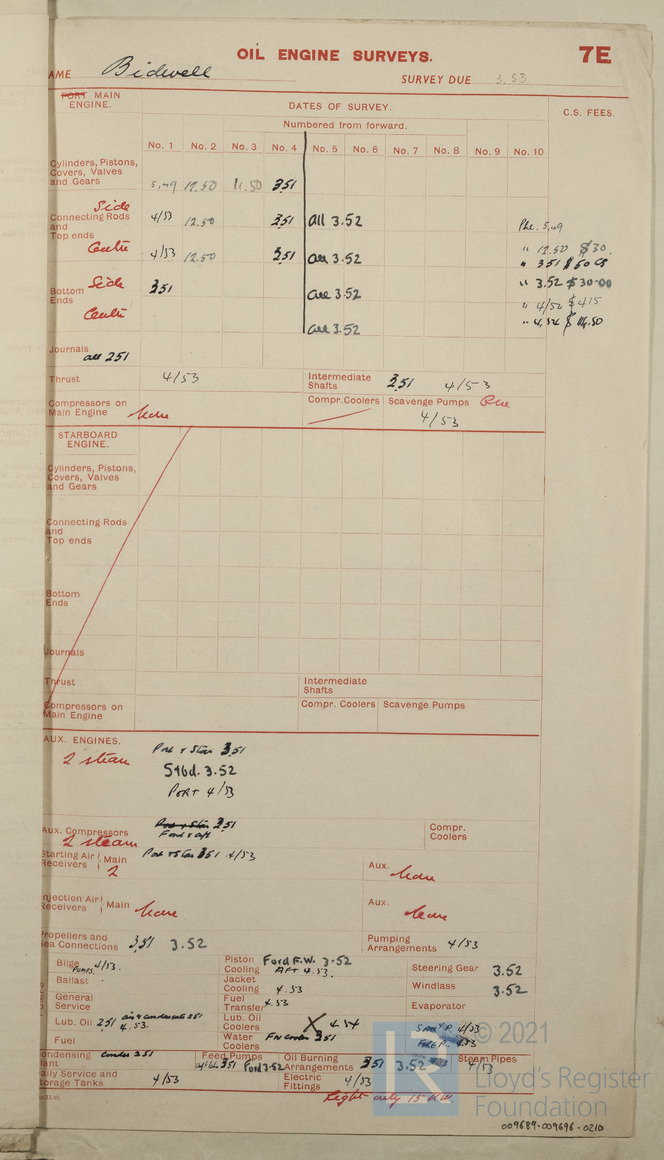 OIL ENGINE SURVEYS.
7E
AME Bidwell
SURVEY DUE 3.53
PORT MAIN ENGINE.
DATES OF SURVEY.
C.S. FEES.
Numbered from forward.
No. 1 No. 2 No. 3 No. 4 No. 5 No. 6 No. 7 No. 8 No. 9 No. 10
Cylinders, Pistons,
Covers, Valves
and Gears 5.49 12.50 11.50 3.51
Side
Connecting Rods
and
Top ends 4/53 12.50 3.51 all 3.52
Centre 4/53 12.50 3.51 all 3.52
Phe. 5.49
" 12.50 $30.
" 3.51 $60
" 3.52 $30.00
" 4/52 $415
Bottom Side
Ends 3.51 all 3.52
Centre all 3.52
Journals
all 2.51
Thrust 4/53
Intermediate
Shafts 3.51 4/53
Compressors on
Main Engine None
Compr. Coolers
Scavenge Pumps One
4/53
STARBOARD
ENGINE.
Cylinders, Pistons,
Covers, Valves
and Gears
Connecting Rods
and
Top ends
Bottom
Ends
Journals
Thrust
Intermediate
Shafts
Compressors on
Main Engine
Compr. Coolers
Scavenge Pumps
AUX. ENGINES.
2 steam
Port & Star 3.51
Stbd. 3.52
PORT 4/53
Aux. Compressors
2 steam
Port & Star 3.51
Ford & Aft
Compr.
Coolers
Starting Air
Receivers Main
2
Port & Star 3.51 4/53
Aux.
None
Injection Air
Receivers Main None
Aux.
None
Propellers and
Sea Connections 3.51 3.52
Pumping
Arrangements 4/53
Bilge
Pumps. 4/53.
Piston
Cooling Ford F.W. 3.52
AFT 4.53.
Steering Gear 3.52
Ballast
Jacket
Cooling 4.53
Windlass 3.52
General
Service
Fuel
Transfer 4.53
Evaporator
Lub. Oil 2.51
4.53.
Lub. Oil
Coolers X 4.54
SANY P. 4/53
Fuel
Water
Coolers FW cooler 3.51
FIRE P. 4.53
Condensing
Plant Conder 2.51
Feed Pumps
3.51 Ford 3.52
Oil Burning
Arrangements 3.51 3.52
Steam Pipes
4/53
Daily Service and
Storage Tanks 4/53
Electric
Fittings 4/53
Light only 15 K.W.
© 2021
Lloyd's Register
Foundation
009689-009696-0210